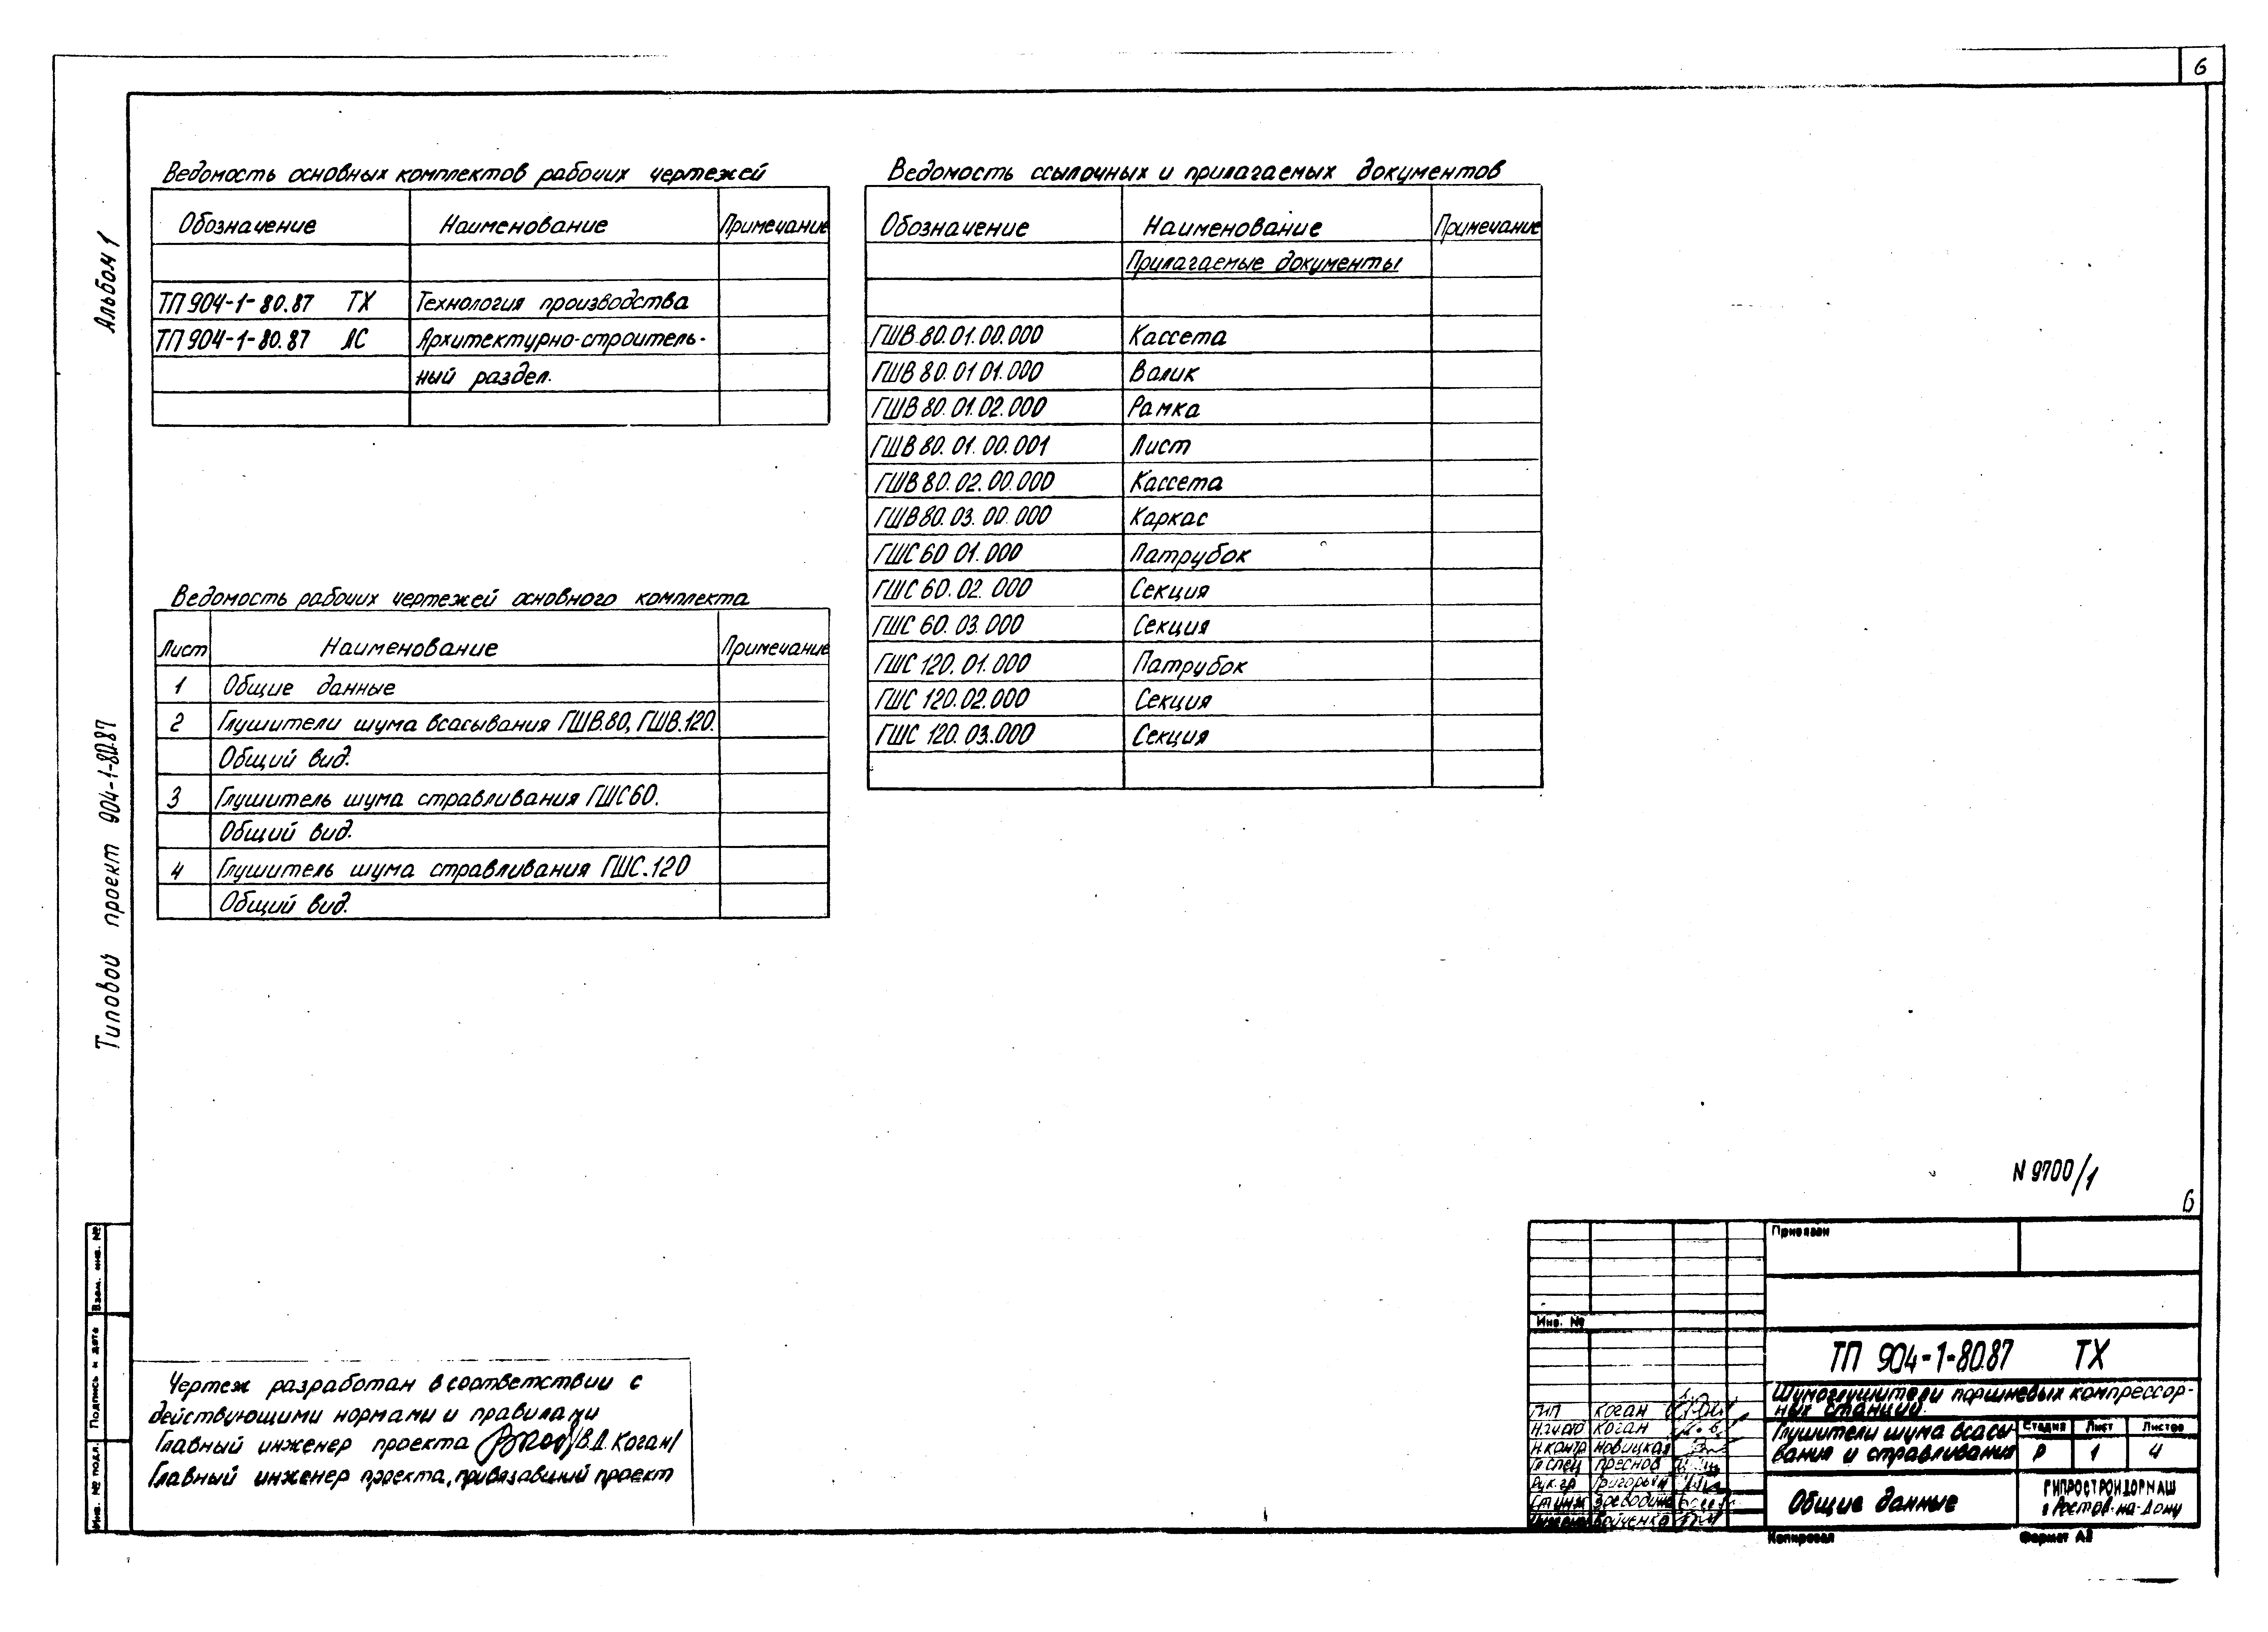 6
Альбом 1
Типовой проект 904-1-80.87
Ведомость основных комплектов рабочих чертежей
Обозначение Наименование Примечание
ТП 904-1-80.87 ТХ Технология производства
ТП 904-1-80.87 АС Архитектурно-строитель-
ный раздел.
Ведомость рабочих чертежей основного комплекта
Лист Наименование Примечание
1 Общие данные
2 Глушители шума всасывания ГШВ.80, ГШВ.120.
Общий вид.
3 Глушитель шума стравливания ГШС60.
Общий вид.
4 Глушитель шума стравливания ГШС.120
Общий вид.
Ведомость ссылочных и прилагаемых документов
Обозначение Наименование Примечание
Прилагаемые документы
ГШВ 80.01.00.000 Кассета
ГШВ 80.01 01.000 Валик
ГШВ 80.01.02.000 Рамка
ГШВ 80.01.00.001 Лист
ГШВ 80.02.00.000 Кассета
ГШВ 80.03.00.000 Каркас
ГШС 60 01.000 Патрубок
ГШС 60.02.000 Секция
ГШС 60.03.000 Секция
ГШС 120.01.000 Патрубок
ГШС 120.02.000 Секция
ГШС 120.03.000 Секция
N 9700/1
6
Взам. инв. №
Подпись и дата
Инв. № подл.
Чертеж разработан в соответствии с
действующими нормами и правилами
Главный инженер проекта /В.Д. Коган/
Главный инженер проекта, привязавший проект
Привязан
Инв. №
ТП 904-1-80.87 ТХ
Шумоглушители поршневых компрессор-
ных станций.
ГИП Коган
Коган
Н.контр Новицкая
Гл спец Преснов
Рук.гр Григорьян
Ст инж
Инженер
Глушители шума всасы-
вания и стравливания
Стадия Лист Листов
Р 1 4
Общие данные
ГИПРОСТРОЙДОРМАШ
г Ростов-на-Дону
Копировал Формат А2